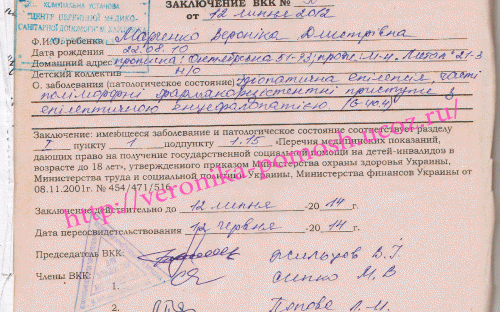 ЗАКЛЮЧЕНИЕ ВКК №
от 12 липня 2012
КОМУНАЛЬНА УСТАНОВА
"ЦЕНТР ПЕРВИННОЇ МЕДИКО-
САНІТАРНОЇ ДОПОМОГИ М.
Ф.И.О. ребенка Марченко Вероніка Дмитрівна
Дата рождения 22.08.10
Домашний адрес прописка: Октябрська 51-93; прож:
Детский коллектив н/о
О. заболевания (патологическое состояние) Ідіопатична епілепсія, часті
поліморфні фармакорезистентні приступи з
епілептичною енцефалопатією (G 40.4)
Заключение: имеющееся заболевание и патологическое состояние соответствует разделу
I пункту 1 подпункту 1.15 «Перечня медицинских показаний,
дающих право на получение государственной социальной помощи на детей-инвалидов в
возрасте до 18 лет, утвержденного приказом Министерства охраны здоровья Украины,
Министерства труда и социальной политики Украины, Министерства финансов Украины от
08.11.2001г. № 454/471/516.
Заключение действительно до 12 липня -20 14 г.
Дата пересвидетельствования 12 червня -20 14 г.
Председатель ВКК: В.
Члены ВКК: 1. М.В
2. Попова Л.М.
http://veronika-pomozh.ucoz.ru/